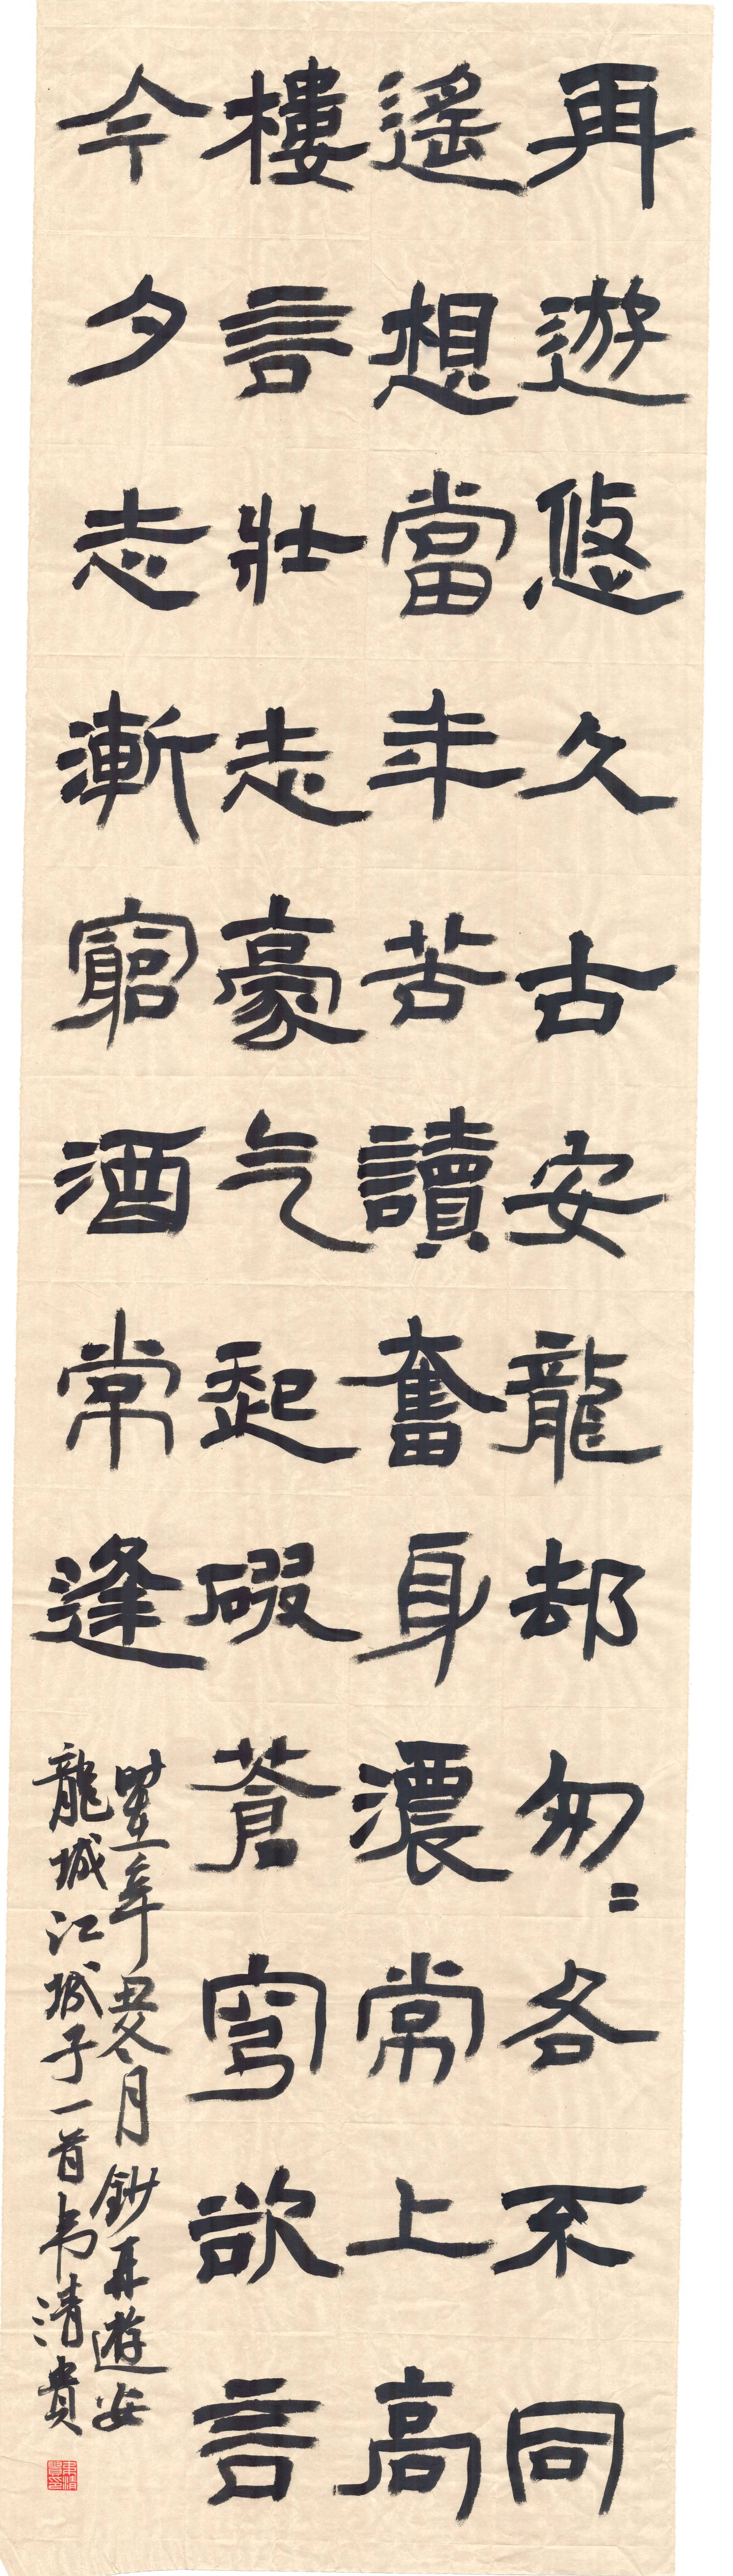 再遊悠久古安龍却匆〻各不同
遙想當年苦讀奮身濃常上高
樓言壯志豪气起破蒼穹欲言
今夕志漸窮酒常逢
辛丑冬月鈔再遊安
龍城江城子一首韦清貴